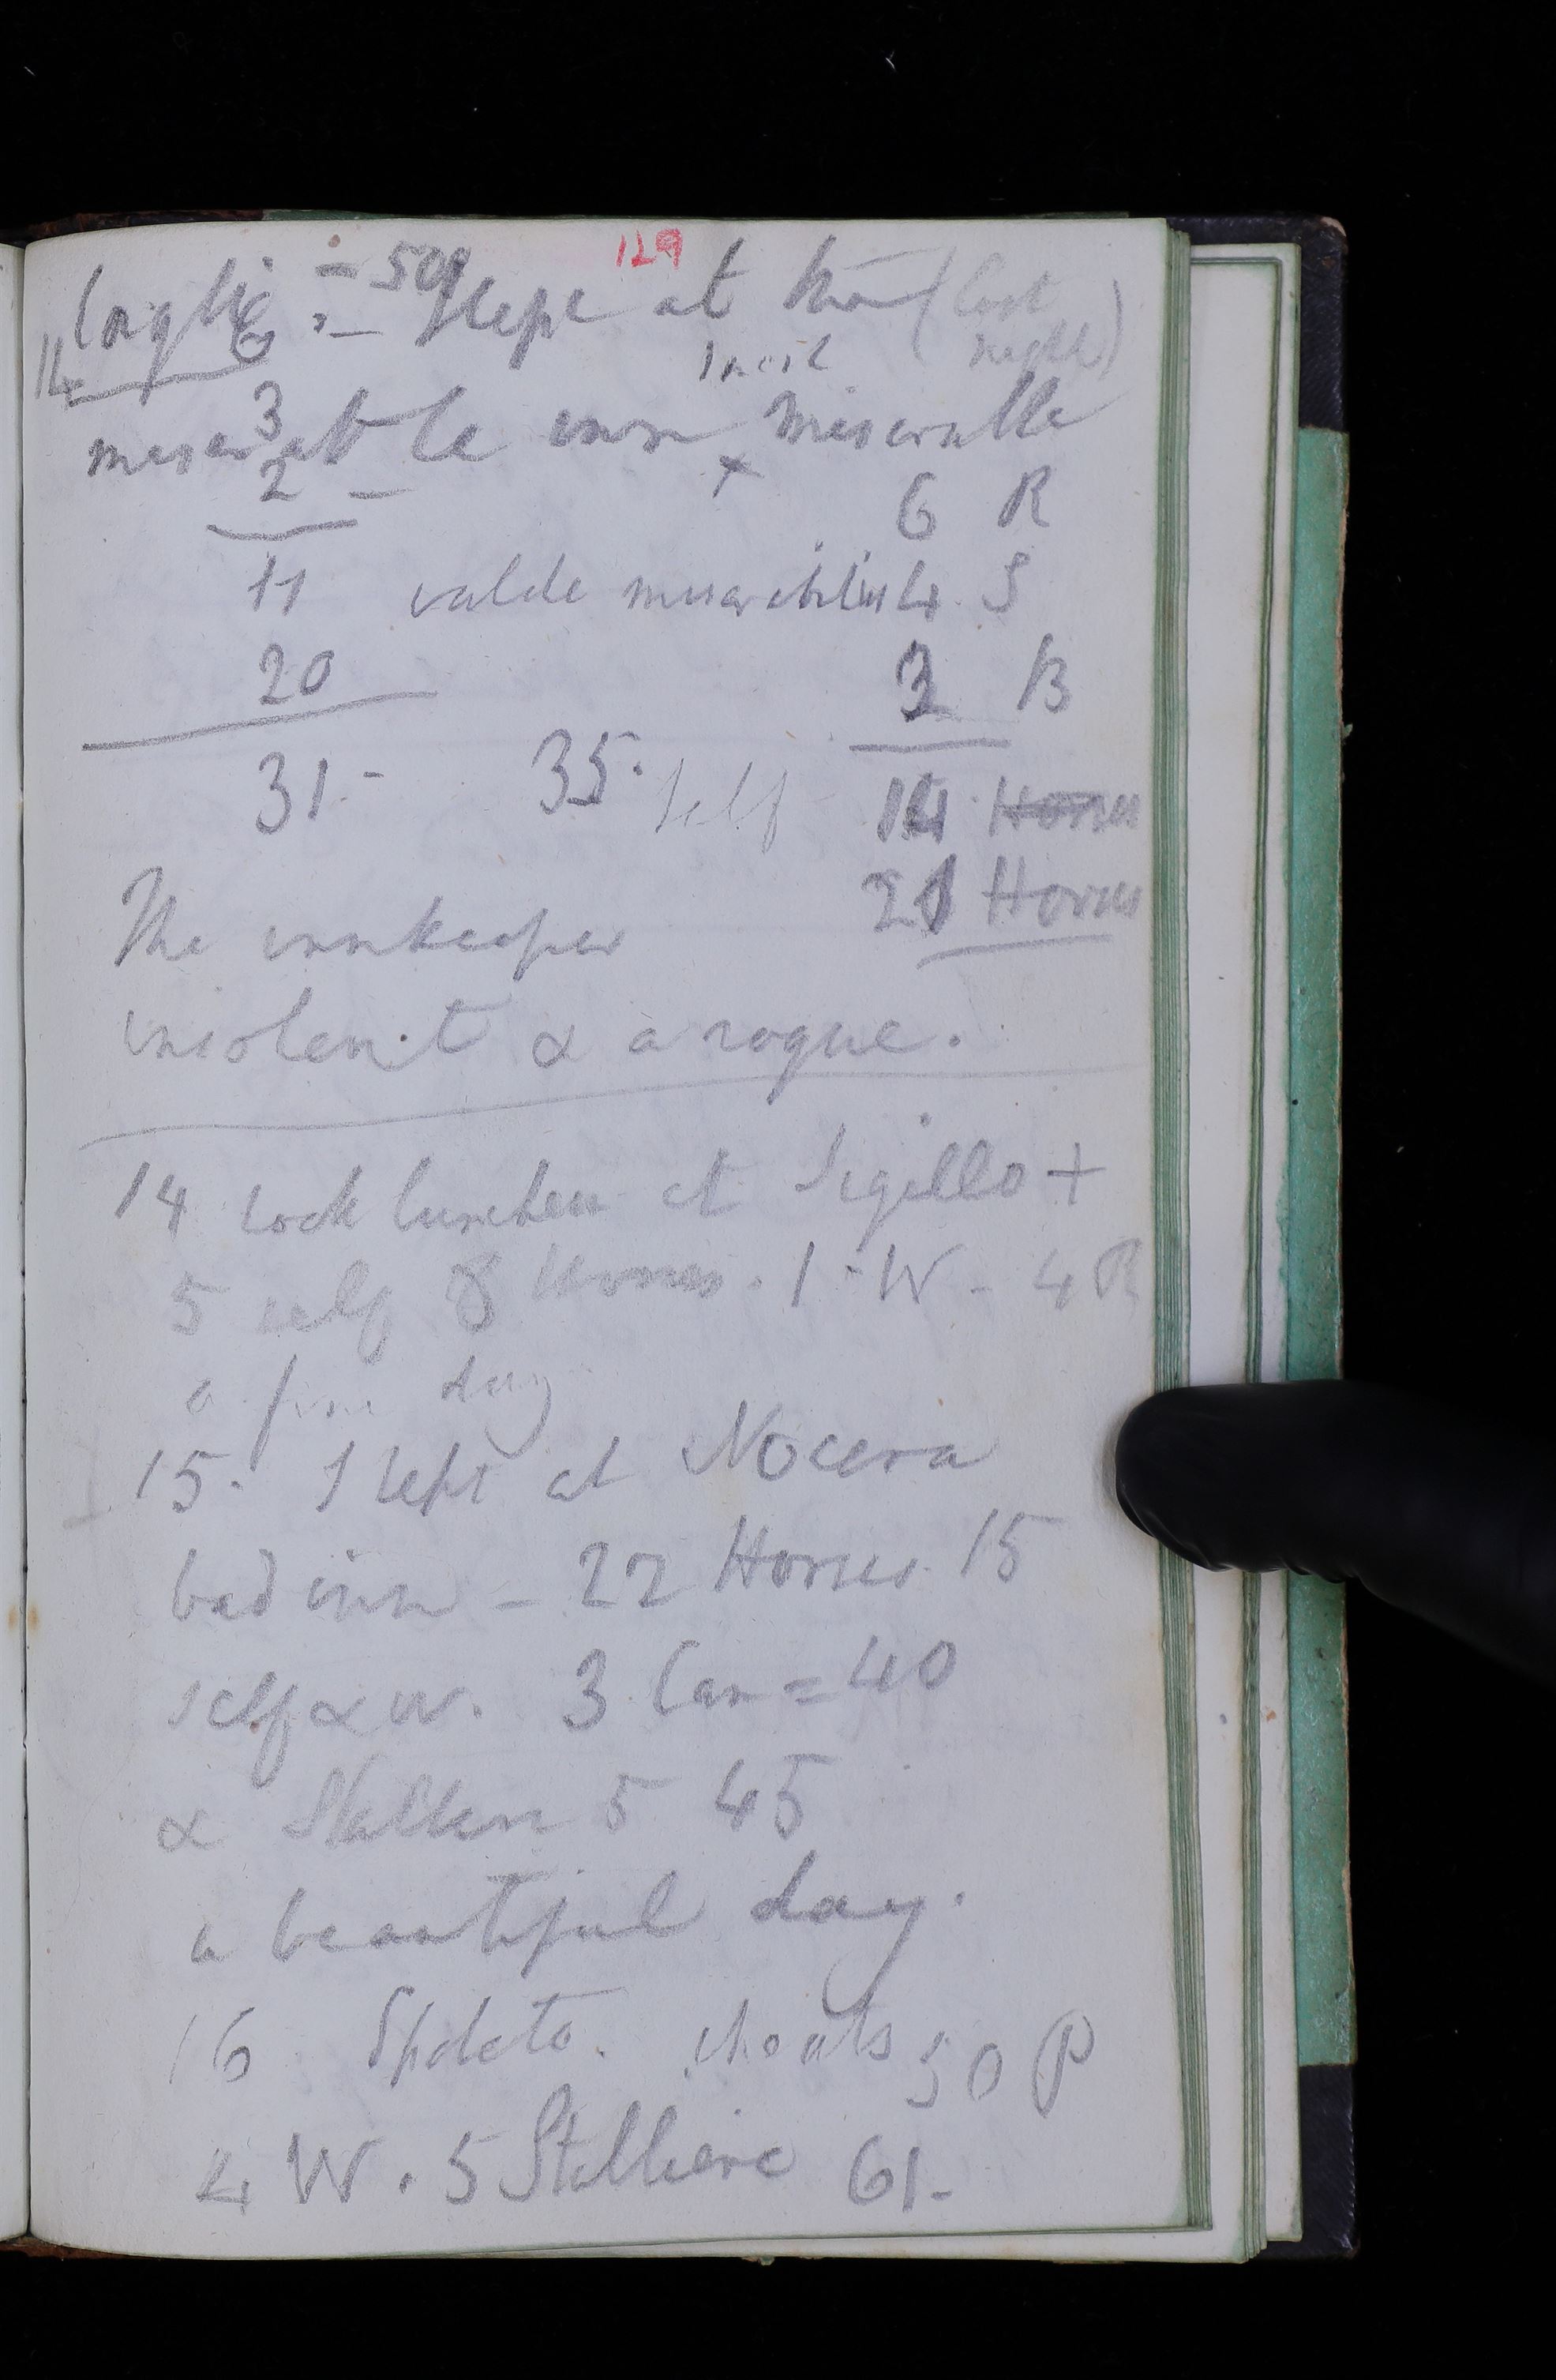 129
= 50
Caglie :– Slept at the (last
14 6 most night)
3
miserable inn miserable
2 – x 6 R
11 valde miserabilis 4 S
20 3 B
31.– 35. self 14 Horses
21 Horses
The innkeeper
insolent & a rogue.
14 took luncheon at Sigillo +
5 self 8 Horses. 1 – W – 4 R
a fine day
15. Slept at Nocera
bad inn – 22 Horses. 15
self & W. 3 Cam = 40
& Stalliere 5 45
a beautiful day.
16 Spoleto. cheats 50 P
4 W. 5 Stalliere 61.–